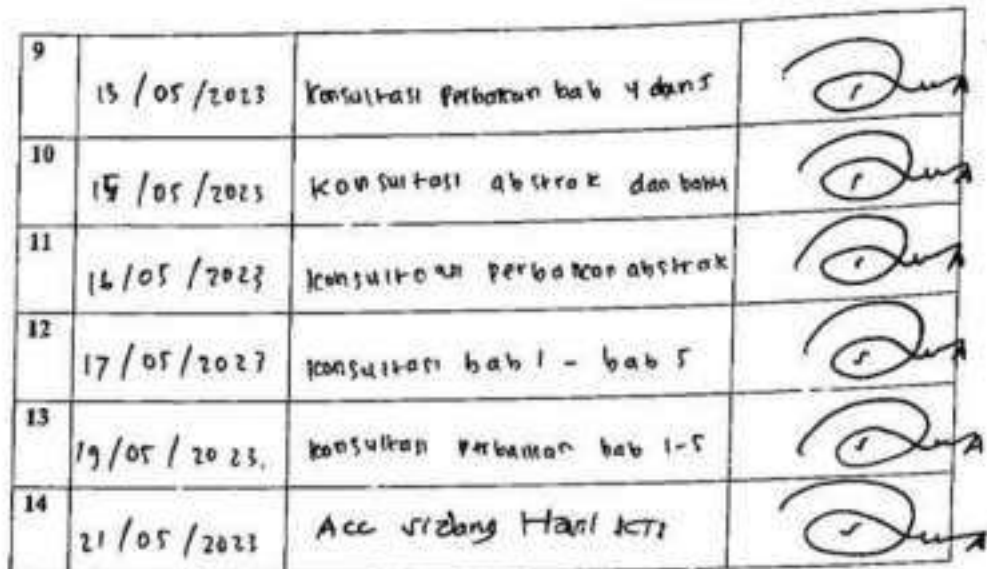 9
13/05/2023 Konsultasi Perbaikan bab 4 dan 5
10
15/05/2023 Konsultasi abstrak dan bab 4
11
16/05/2023 Konsultasi perbaikan abstrak
12
17/05/2023 Konsultasi bab 1 - bab 5
13
19/05/2023. Konsultasi Perbaikan bab 1-5
14
21/05/2023 Acc sidang Hasil KTI